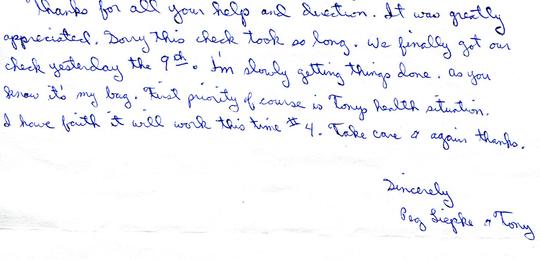 Thanks for all your help and direction. It was greatly
appreciated. Sorry this check took so long. We finally got our
check yesterday the 9th. I'm slowly getting things done. As you
know it's my bag. First priority of course is Tonys health situation.
I have faith it will work this time #4. Take care & again thanks.
Sincerely
Peg Liepke & Tony